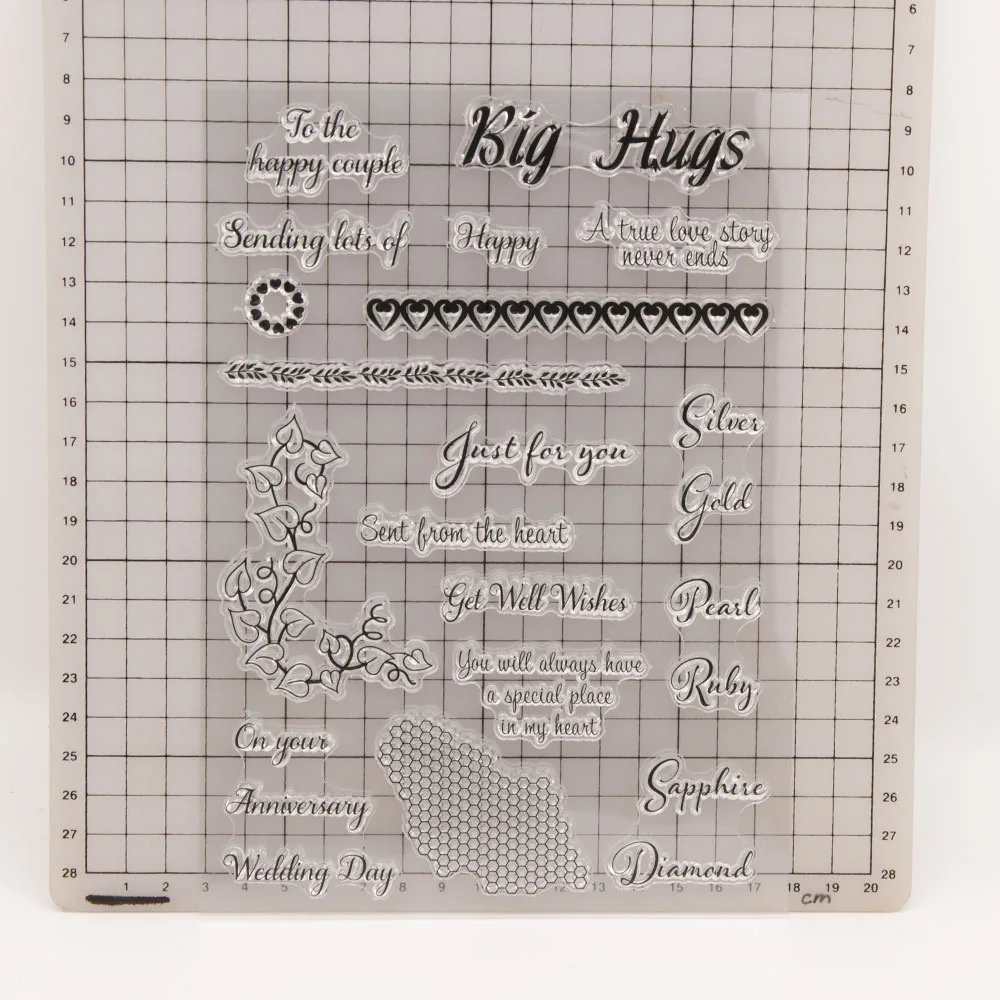 6
7
7
8
8
9
9
10
10
11
11
12
12
13
13
14
14
15
15
16
16
17
17
18
18
19
19
20
20
21
21
22
22
23
23
24
24
25
25
26
26
27
27
28
28
To the
happy couple
Big Hugs
Sending lots of
Happy
A true love story
never ends
Just for you
Silver
Gold
Sent from the heart
Get Well Wishes
Pearl
You will always have
a special place
in my heart
Ruby
On your
Anniversary
Wedding Day
Sapphire
Diamond
1 2 3 4 5 7 8 9 10 11 12 13 14 15 16 17 18 19 20
cm